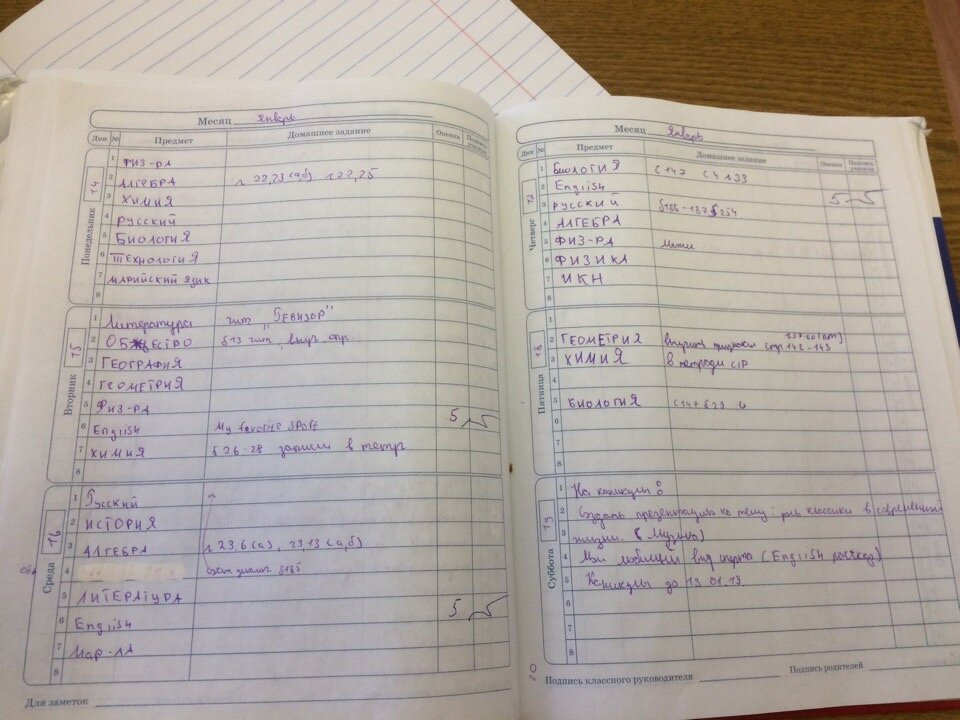 Месяц Январь
Дни № Предмет Домашнее задание Оценка Подпись учителя
Понедельник 14
1 ФИЗ-РА
2 АЛГЕБРА 22,23 (а,б) 22,25
3 ХИМИЯ
4 РУССКИЙ
5 БИОЛОГИЯ
6 ТЕХНОЛОГИЯ
7 МАРИЙСКИЙ ЯЗЫК
8
Вторник 15
1 Литература чит "РЕВИЗОР"
2 §13 чит,
3 ГЕОГРАФИЯ
4 ГЕОМЕТРИЯ
5 ФИЗ-РА
6 English My favorite sport 5
7 ХИМИЯ § 26-28 записи в тетр
8
Среда 16
1 Русский
2 ИСТОРИЯ
3 АЛГЕБРА 23,6 (а), 23,13 (а,б)
4 §185
5 ЛИТЕРАТУРА
6 English 5
7 Мар-ЛА
8
Для заметок
Месяц Январь
Дни № Предмет Домашнее задание Оценка Подпись учителя
Четверг
1 БИОЛОГИЯ С 147
2 English
3 РУССКИЙ §186-187 5
4 АЛГЕБРА
5 ФИЗ-РА Лыжи
6 ФИЗИКА
7 ИКН
8
Пятница 18
1
2 ГЕОМЕТРИЯ выучить признаки стр 142-143
3 ХИМИЯ в тетради с/р
4
5 БИОЛОГИЯ
6
7
8
Суббота 19
1 На каникулы:
2 Создать презентацию на тему: роль классики в современной
3 жизни. (Музыка)
4 Мой любимый вид спорта (English рассказ)
5 Каникулы до 13.01.19.
6
7
8
20
Подпись классного руководителя Подпись родителей